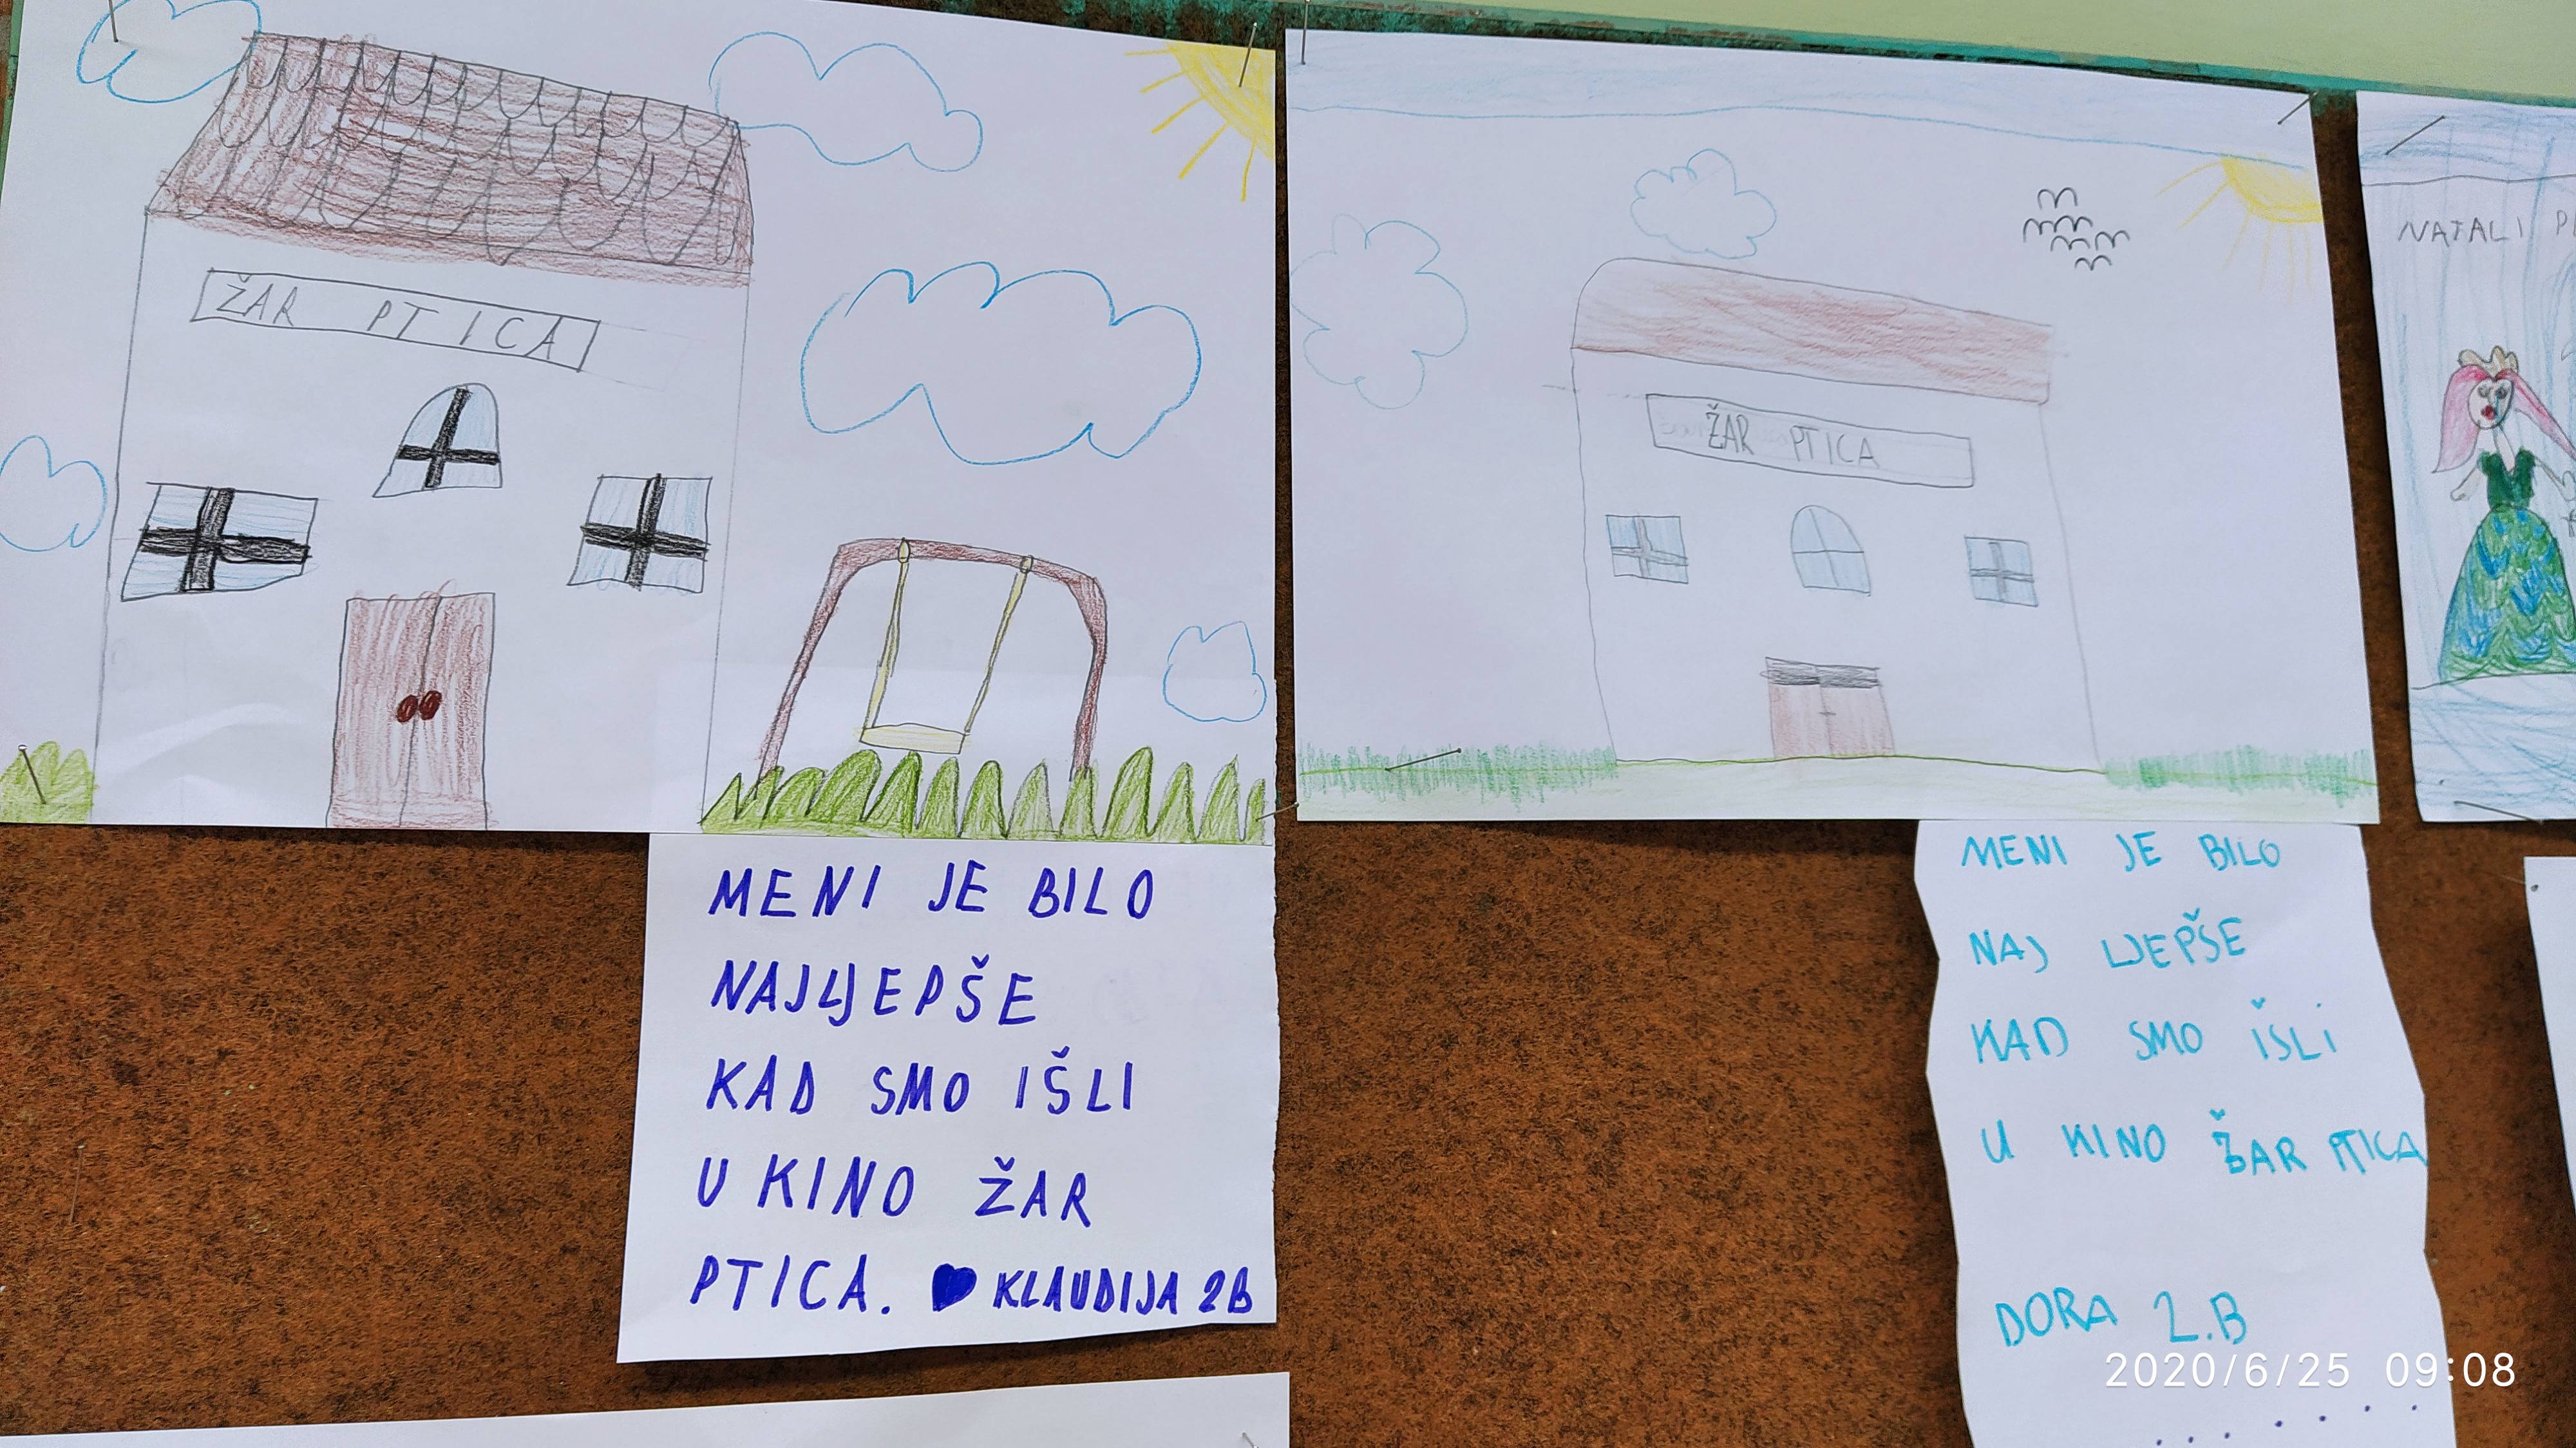 ŽAR PTICA
MENI JE BILO
NAJLJEPŠE
KAD SMO IŠLI
U KINO ŽAR
PTICA. KLAUDIJA 2B
ŽAR PTICA
MENI JE BILO
NAJ LJEPŠE
KAD SMO IŠLI
U KINO ŽAR PTICA
DORA 2.B
NATALI
2020/6/25 09:08